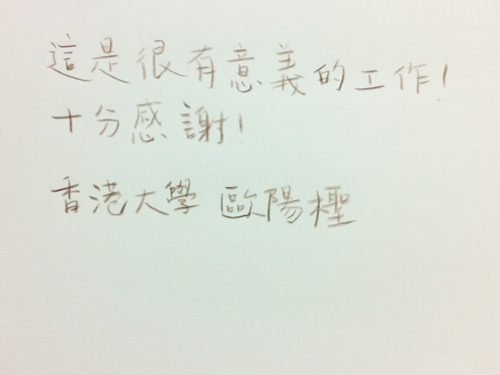 這是很有意義的工作!
十分感謝!
香港大學 歐陽檉